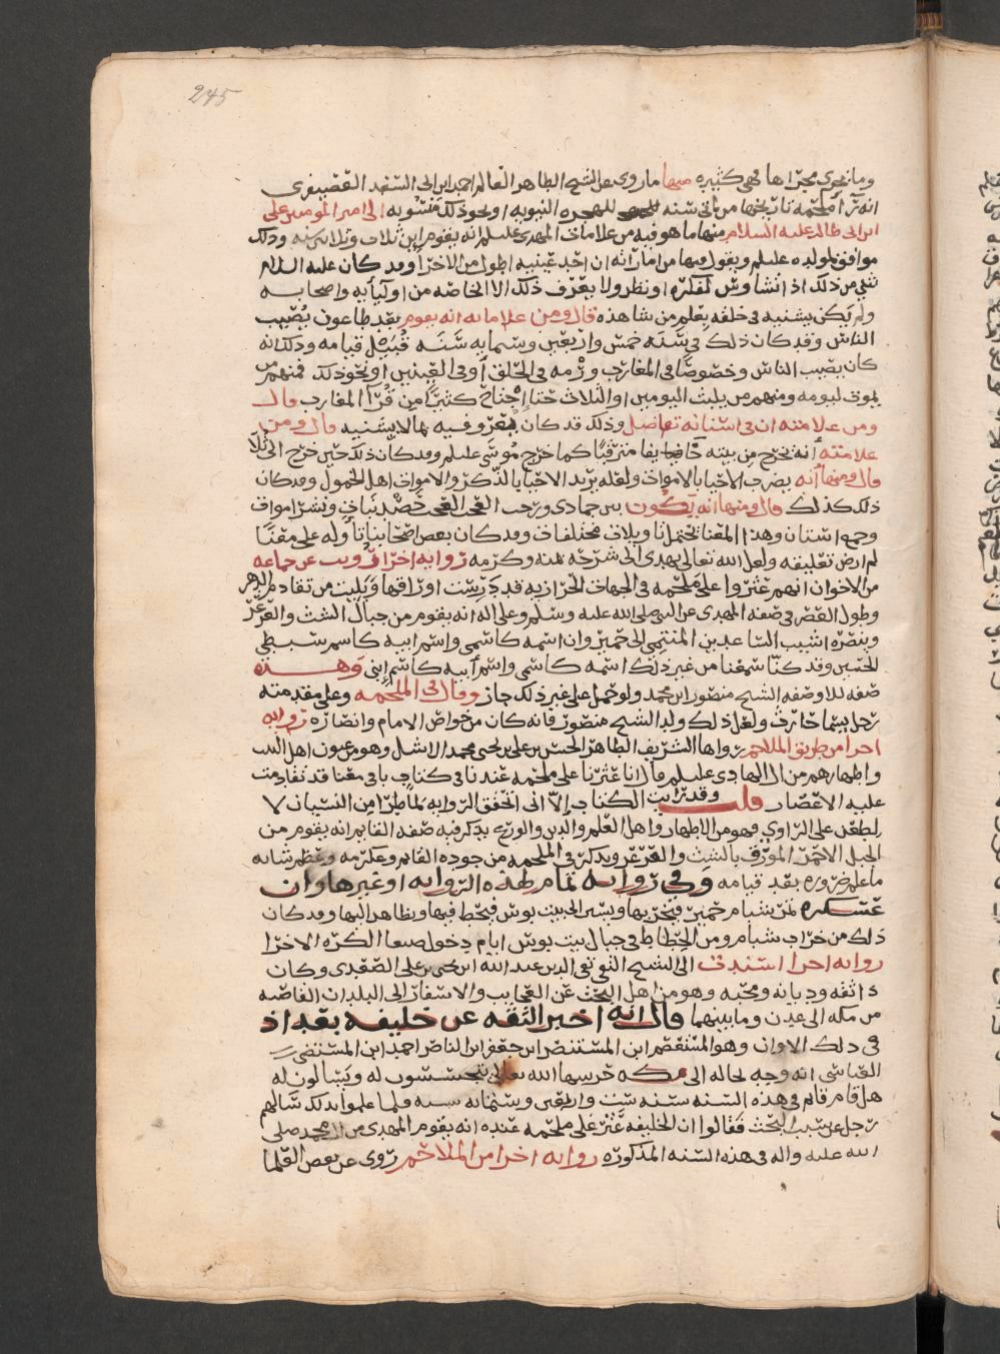 245
وما يجري مجراها فهي كثيره منها ما روى عن الشيخ الطاهر العالم احمد ابن ابي السعد العصيفري
انه قرأ ملحمه تاريخها من مأتي سنه للهجره النبويه او نحو ذلك منسوبه الى امير المومنين علي
ابن ابي طالب عليه السلام منها ما هو فيه من علامات المهدي عليلم انه يقوم ابن ثلاث وثلاثين سنه وذلك
موافق لمولده عليلم ويقول فيها من اماراته ان احد عينيه اطول من الاخرا وقد كان عليه السلام
شي من ذلك اذا تشاوش لفكره او نظر ولا يعرف ذلك الا الخاصه من اوليآئه واصحابه
ولم يكن يشنيه في خلقه يعلم من شاهده قال ومن علاماته انه يقوم بعد طاعون يصيب
الناس وقد كان ذلك في سنه خمس واربعين وستمايه سنه قبيل قيامه وذلك انه
كان يصيب الناس وخصوصًا في المغارب ورمه في الحلق أو في العينين او نحو ذلك فمنهم من
يموت ليومه ومنهم من يلبث اليومين او الثلاث حتا اجتاح كثيرًا من قرا المغارب قال
ومن علامته ان في اسنانه تفاصل وذلك قد كان يعرف فيه مما لا يشنيه قال ومن
علامته أنه يخرج من بيته خايفا مترقبًا كما خرج موسى عليلم وقد كان ذلك حين خرج الى ثلا
قال ومنها أنه يضرب الاحيا بالاموات ولعله يريد الاحيا بالذكر والاموات اهل الخمول وقد كان
ذلك كذلك قال ومنها انه يكون بين جمادى ورجب العجب العجب حصد نبات ونشر اموات
وجمع اشتات وهذا المعنا تحتمل تاويلات مختلفات وقد كان بعض اصحابنا تأوله على معنًا
لم ارض تعليقه ولعل الله تعالى يهدي الى شرحه بمنه وكرمه روايه اخرا رويت عن جماعه
من الاخوان انهم عثروا على ملحمه في الجهات الحرازيه قد درست اوراقها وبليت من تقادم الدهر
وطول العصر في صفه المهدي عن النبي صلى الله عليه وسلم وعلى اله انه يقوم من جبال الشث والعرعر
وينصره اشيب الساعدين المنتمي الى حمير وان اسمه كاسمي واسم ابيه كاسم سبطي
الحسين وقد كنا سمعنا من غير ذلك اسمه كاسمي واسم أبيه كاسم ابني وهذه
صفه للاوصفه الشيخ منصور ابن محمد ولو حمل على غير ذلك جاز وقال في الملحمه وعلى مقدمته
رجل يسما حارث ولعل ذلك ولد الشيخ منصور فانه كان من خواص الامام وانصاره روايه
اخرا من طريق الملاحم رواها الشريف الطاهر الحسن بن علي بن يحيى محمد الاشل وهو من عيون اهل البيت
واطهارهم من ال الهادي عليلم قال انا عثرنا على ملحمه عندنا في كتاب باقي معنا قد تقادمت
عليه الاعصار قلت وقد رايت الكتاب إلا اني اتحقق الروايه لما طرا من النسيان لا
لطعن على الراوي وهو من الاطهار واهل العلم والدين والورع يذكر فيه صفه القايم انه يقوم من
الجبل الاحمر المورف بالشث والعرعر ويذكر في الملحمه من جوده القايم وعكرمه وعظم شانه
ما علم ضروره بعد قيامه وفي روايه تمام لهذه الروايه او غيرها وان
عسكره تمر شبام حمير فيخربها ويسير الى بيت بوس فيحط فيها ويظاهر اليها وقد كان
ذلك من خراب شبام ومن الحطاط في جبال بيت بوس ايام دخول صنعا الكره الاخرا
روايه اخرا اسندت الى الشيخ التقي تقي الدين عبد الله ابن يحيى بن علي الصعدي وكان
ذا ثقه وديانه ومحبه وهو من اهل البحث عن العجايب والاسفار الى البلدان القاصيه
من مكه الى عدن وما بينهما قال انه اخبر الثقه عن خليفه بغداد
في ذلك الاوان وهو المستعصم ابن المستنصر ابن جعفر ابن الناصر احمد ابن المستضي
العباسي انه وجه لحاله الى مكه حرسها الله تعالى يتجسسون له ويسالون له
هل قام قايم في هذه السنه سنه ست واربعين وستمائه سنه فلما علموا بذلك سالهم
رجل عن سبب البحث فقالوا ان الخليفه عثر على ملحمه عنده انه يقوم المهدي من ال محمد صلى
الله عليه واله في هذه السنه المذكوره روايه اخرا من الملاحم روى عن بعض العلما